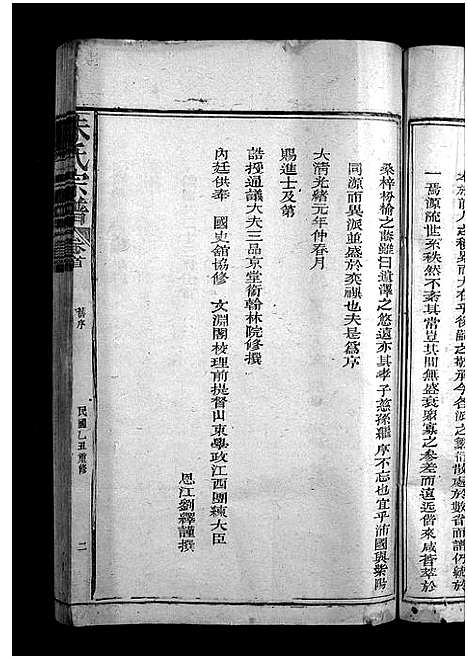 本於前人之
一舊源流世系秩然不紊其當豈其間無盛衰衆寡之參差而遠近皆來咸薈萃於
桑梓枌榆之蔭雖曰道澤之悠遠亦其孝子慈孫繼序不忘也宜乎沛國與紫陽
同源而異派並盛於奕禩也夫是爲序
大清光緒元年仲春月
賜進士及第
誥授通議大夫三品京堂銜翰林院修撰
內廷供奉 國史舘協修 文淵閣校理前提督山東學政江西團練大臣
恩江劉繹謹撰
朱氏宗譜 卷首
舊序
民國乙丑重修
二